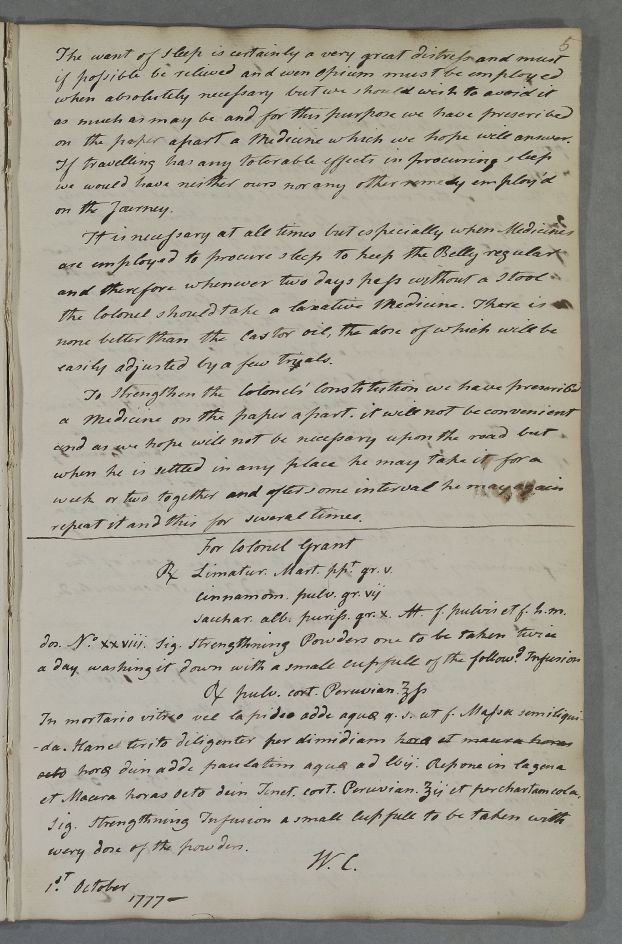 5
The want of sleep is certainly a very great distress and must
if possible be relieved and even Opium must be employed
when absolutely necessary but we should wish to avoid it
as much as may be and for this purpose we have prescribed
on the paper apart a Medicine which we hope will answer.
If travelling has any tolerable effects in procuring sleep
we would have neither ours nor any other remedy employ'd
on the Journey.
It is necessary at all times but especially when Medicines
are employed to procure sleep to keep the Belly regular
and therefore whenever two days pass without a Stool
the Colonel should take a laxative Medicine. There is
none better than the Castor oil, the dose of which will be
easily adjusted by a few tryals.
To Strengthen the Colonels' Constitution we have prescribed
a Medicine on the paper apart. it will not be convenient
and as we hope will not be necessary upon the road but
when he is settled in any place he may take it for a
week or two together and after some interval he may again
repeat it and this for several times.
For Colonel Grant
℞ Limatur. Mart. ppt. gr. v.
Cinnamom. pulv. gr. vij
Sacchar. alb. puriss. gr. x. M. f. pulvis et f. h. m.
dos. No. xxviii. Sig. Strengthning Powders one to be taken twice
a day washing it down with a small cupfull of the followd. Infusion
℞ pulv. cort. Peruvian. ℥ss
In mortario vitreo vel lapideo adde aquæ q. s. ut f. Massa semiliqui-
-da. Hanc terito diligenter per dimidiam hora et maura horas
octo horæ dein adde paulatim aquæ ad lbij. Repone in lagena
et Macra horas octo dein Tinct. cort. Peruvian. ℥ij et per chartam cola.
Sig. Strengthning Infusion a small Cupfull to be taken with
every dose of the powders.
W. C.
1st. October
1777